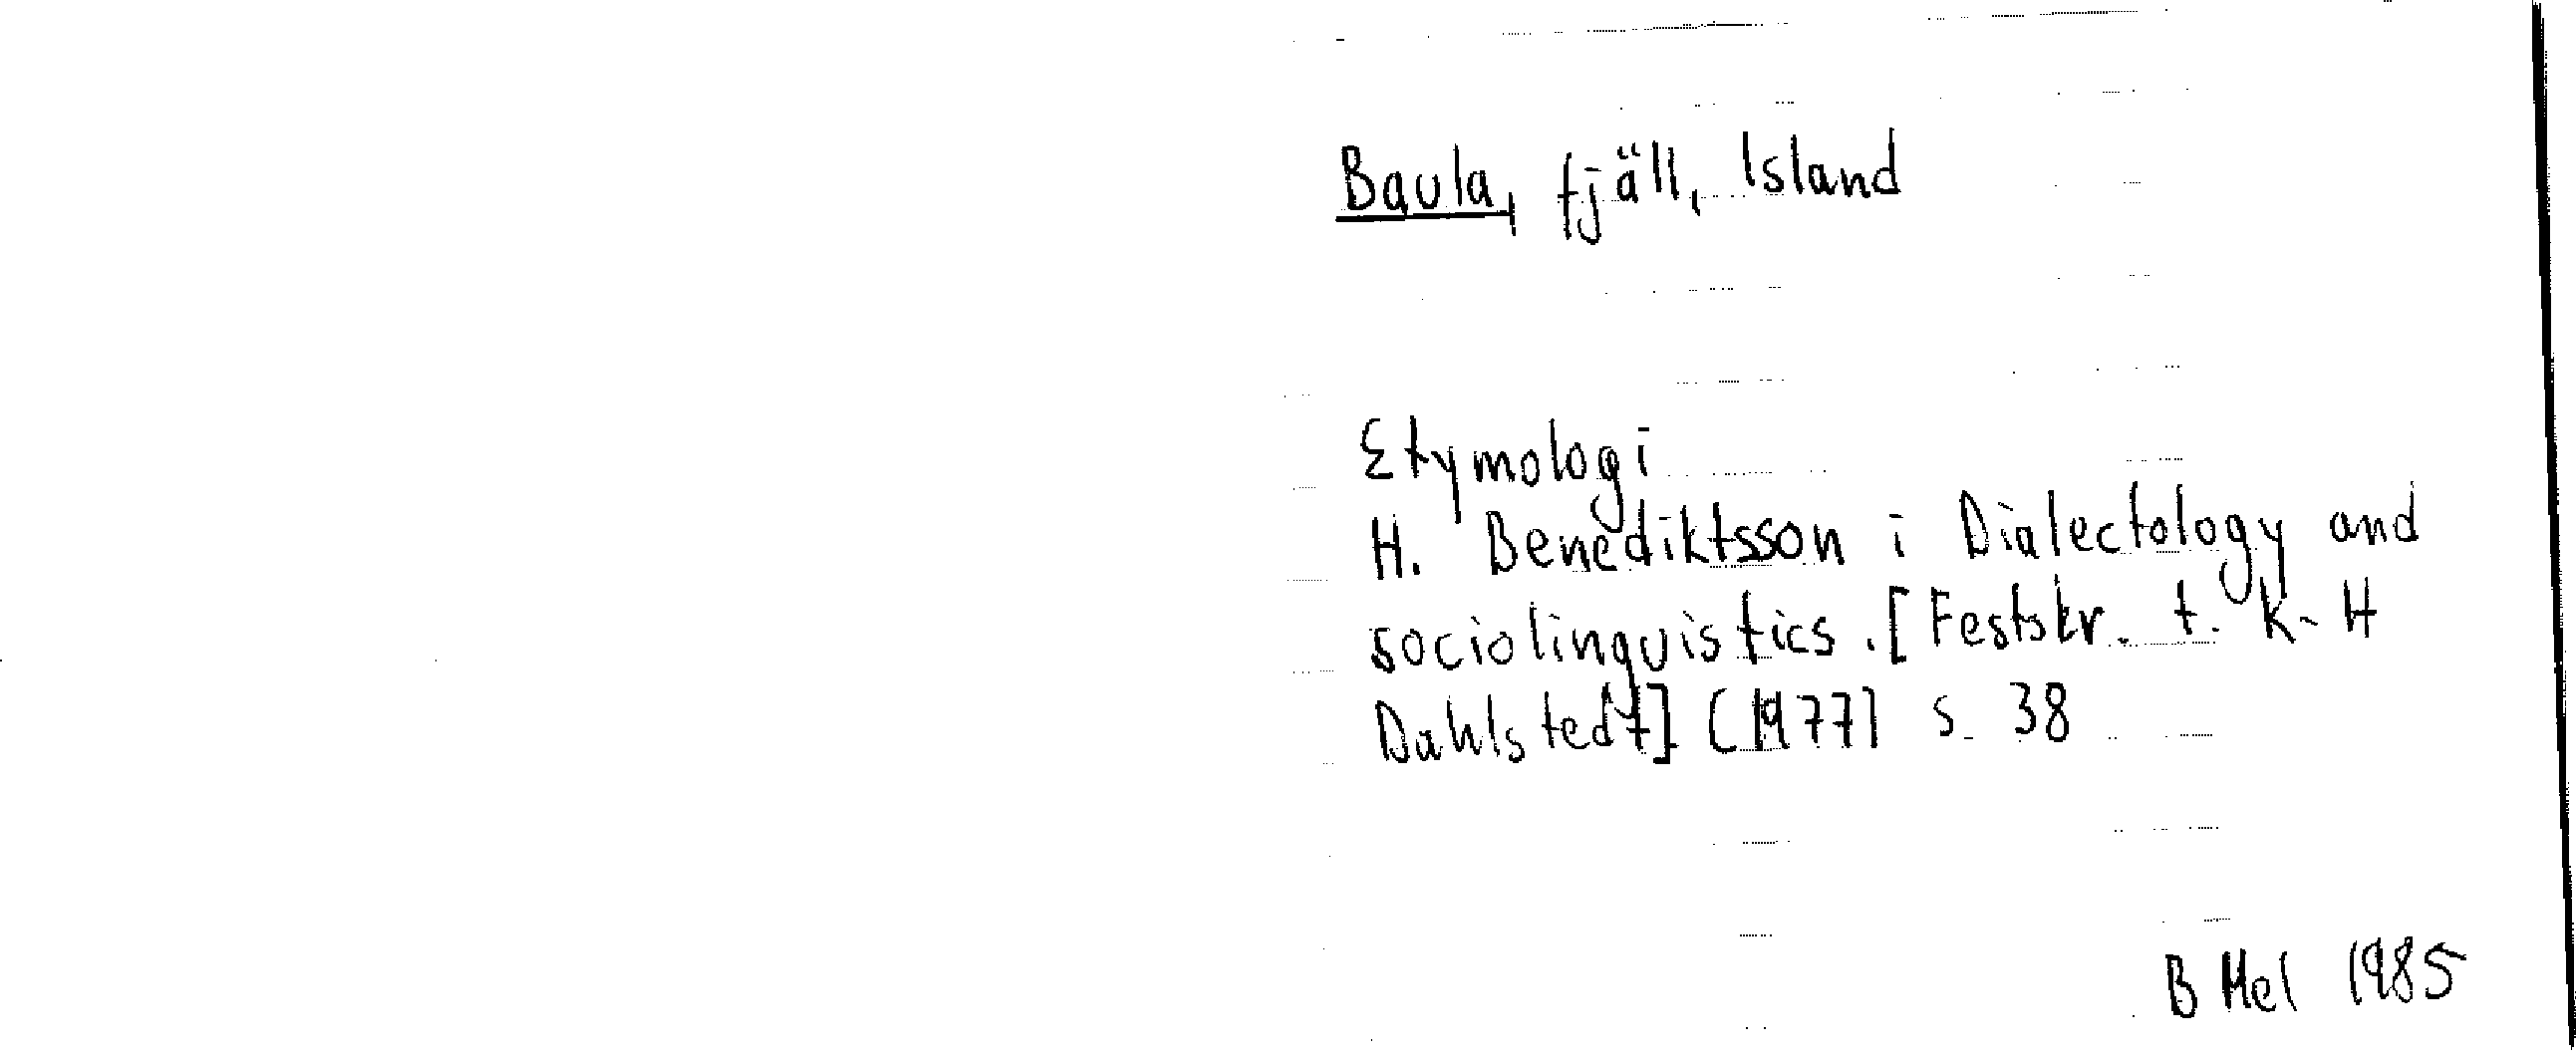 Baula, fjäll, Island
Etymologi
H. Benediktsson i Dialectology and
sociolinguistics. [Festskr. t. K-H
Dahlstedt] (1977) s. 38
B Mel 1985